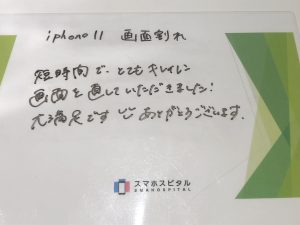 iphone11 画面割れ
短時間で、とてもキレイに
画面を直していただきました!
大満足です ありがとうございます。
スマホスピタル
SMAHOSPITAL